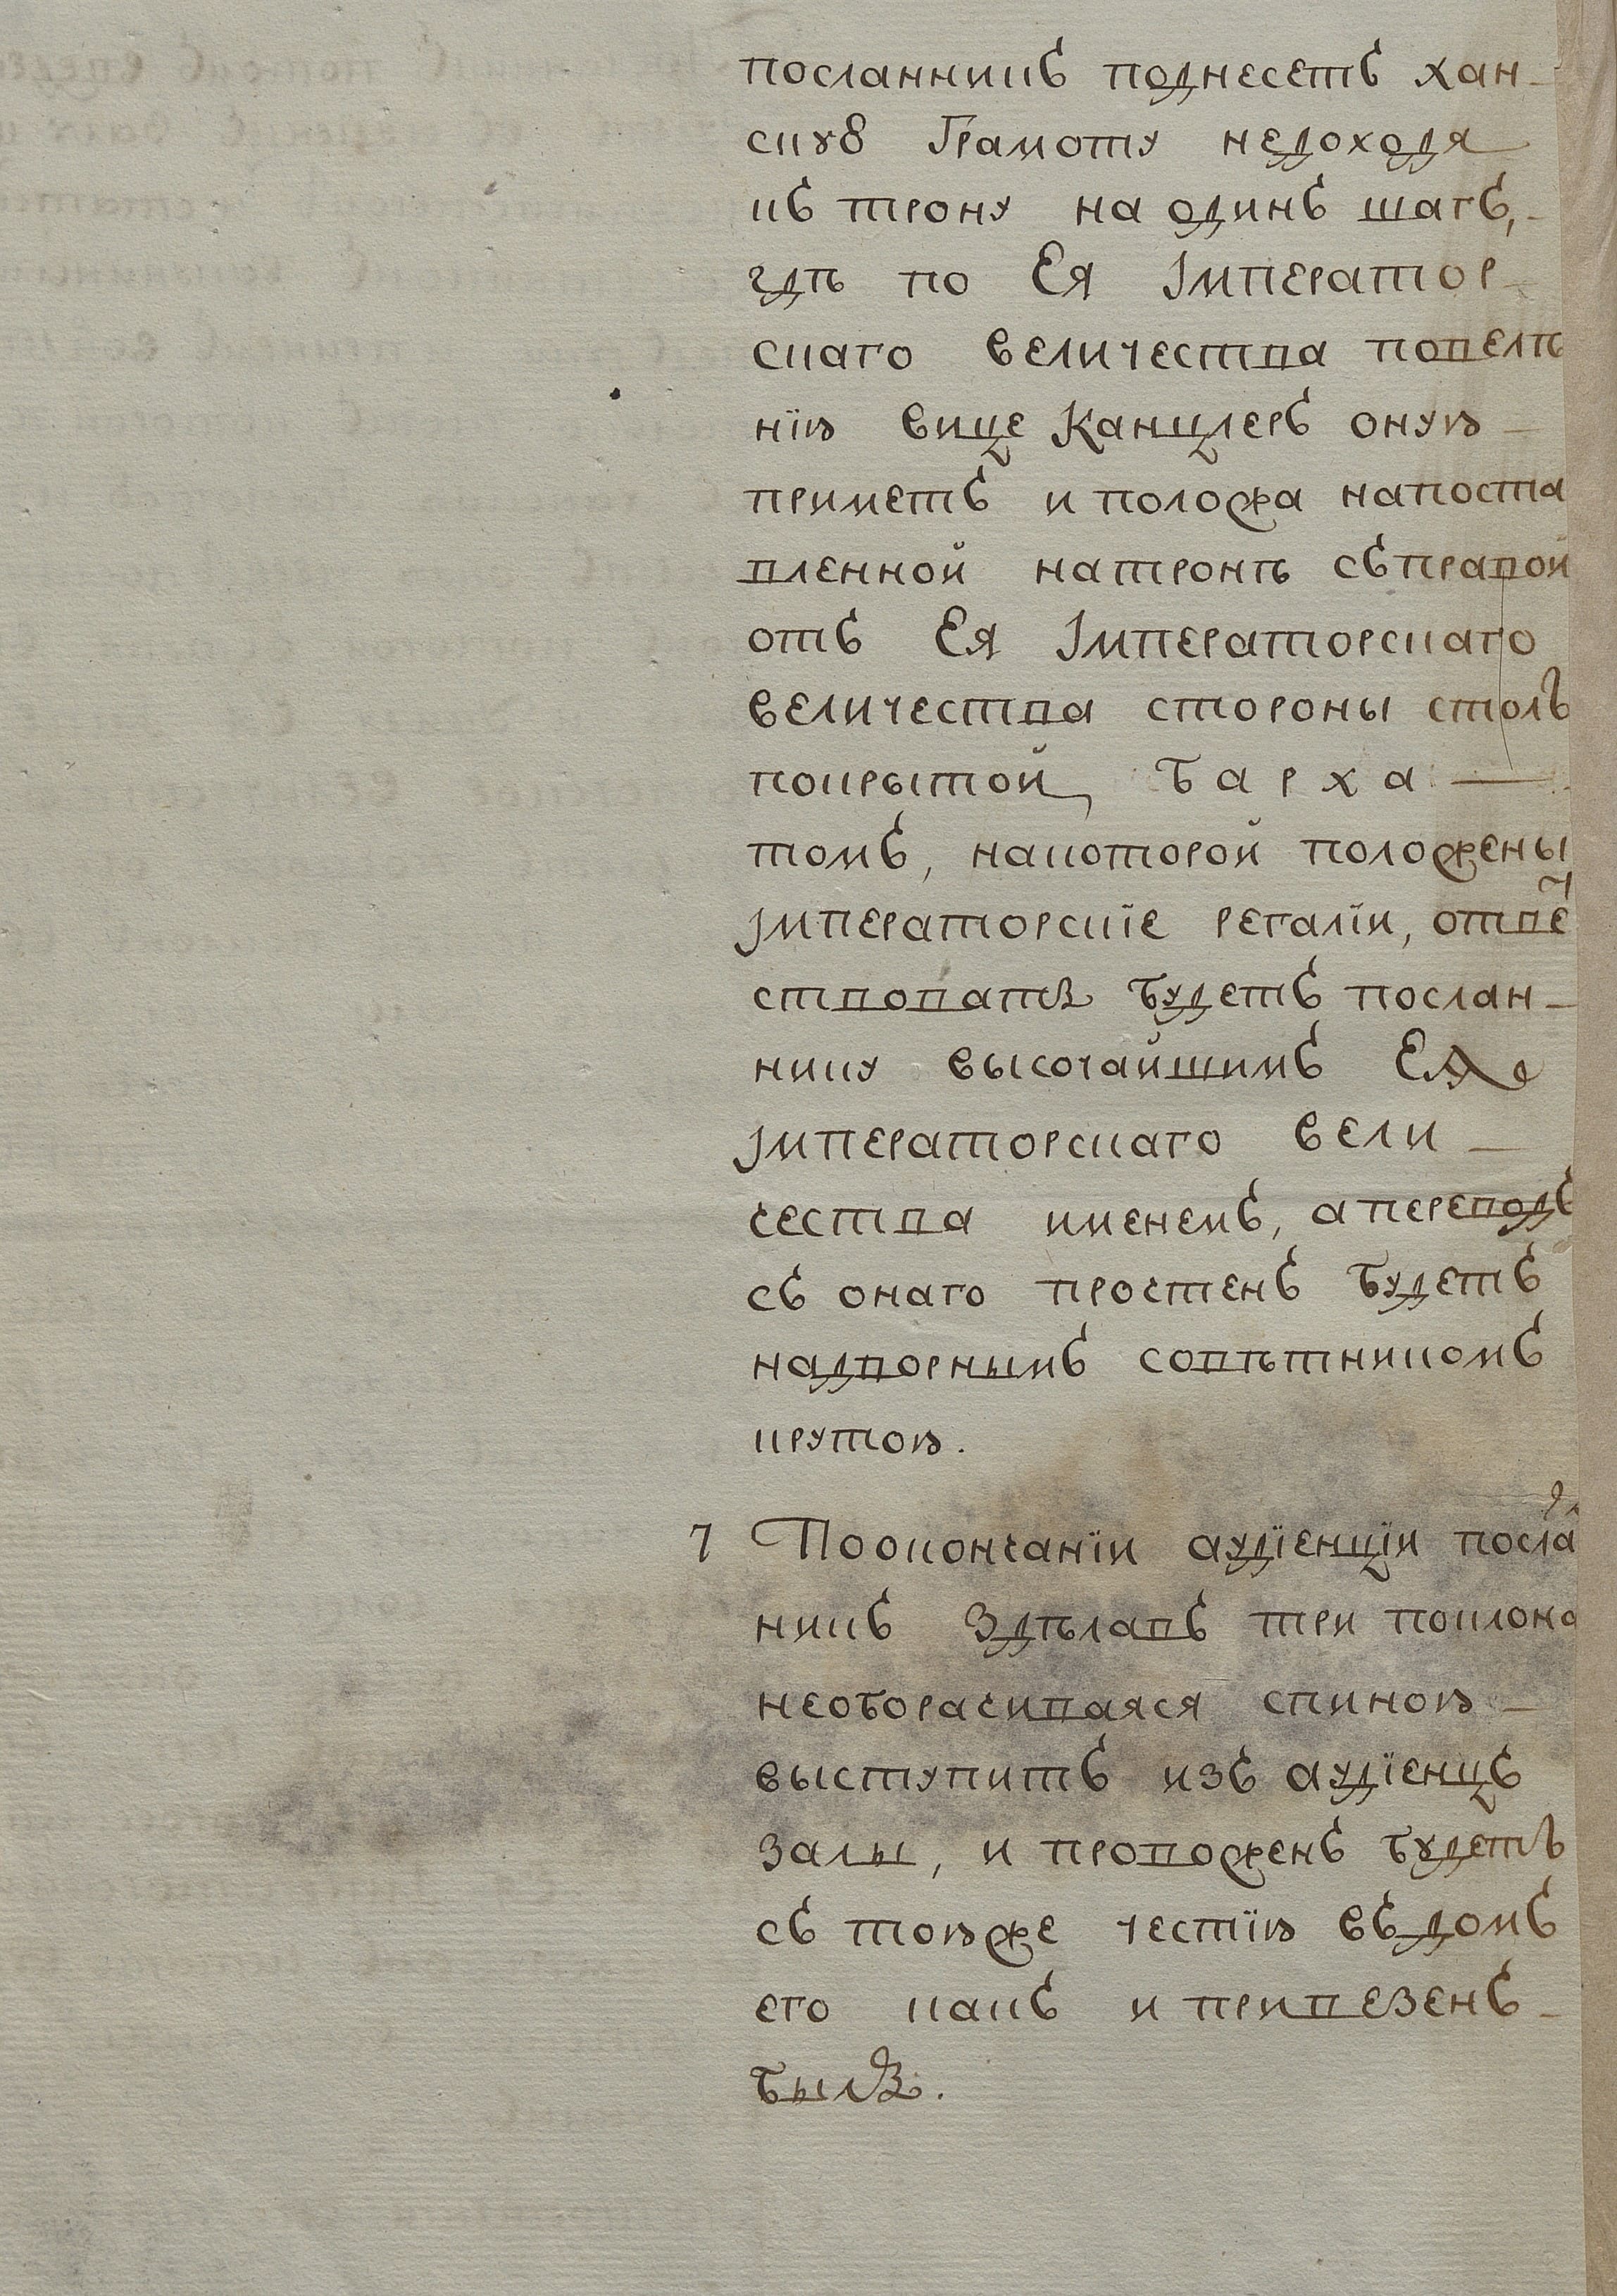 посланникъ поднесетъ хан-
скую Грамоту недоходя
къ трону на одинъ шагъ,-
гдѣ по Ея Император-
скаго величества повелѣ
нїю вице Канцлеръ оную -
приметъ и положа напоста
вленной натронѣ съправой
отъ Ея Императорскаго
величества стороны столъ
покрытой барха —
томъ, накоторой положены
императорскїе регалїи, отвѣт
ствовать будетъ послан-
нику высочайшимъ Ея
императорскаго вели -
чества именемъ, апереводъ
съ онаго прочтенъ будетъ
надворнымъ совѣтникомъ
крутою.
7 Поокончанїи аудїенцїи посла
никъ Здѣлавъ три поклона
необорачиваяся спиною -
выступитъ изъ аудїенцъ
залы, и провожденъ будетъ
съ тоюже честїю въ домъ
его какъ и привезенъ -
былъ.